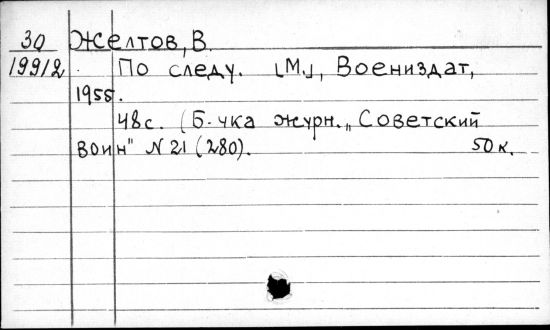 30 Желтов, В.
199/2 По следу. [М.], Воениздат,
1955.
48 с. (Б-чка журн. „Советский
воин" N 21 (280). 50 к.